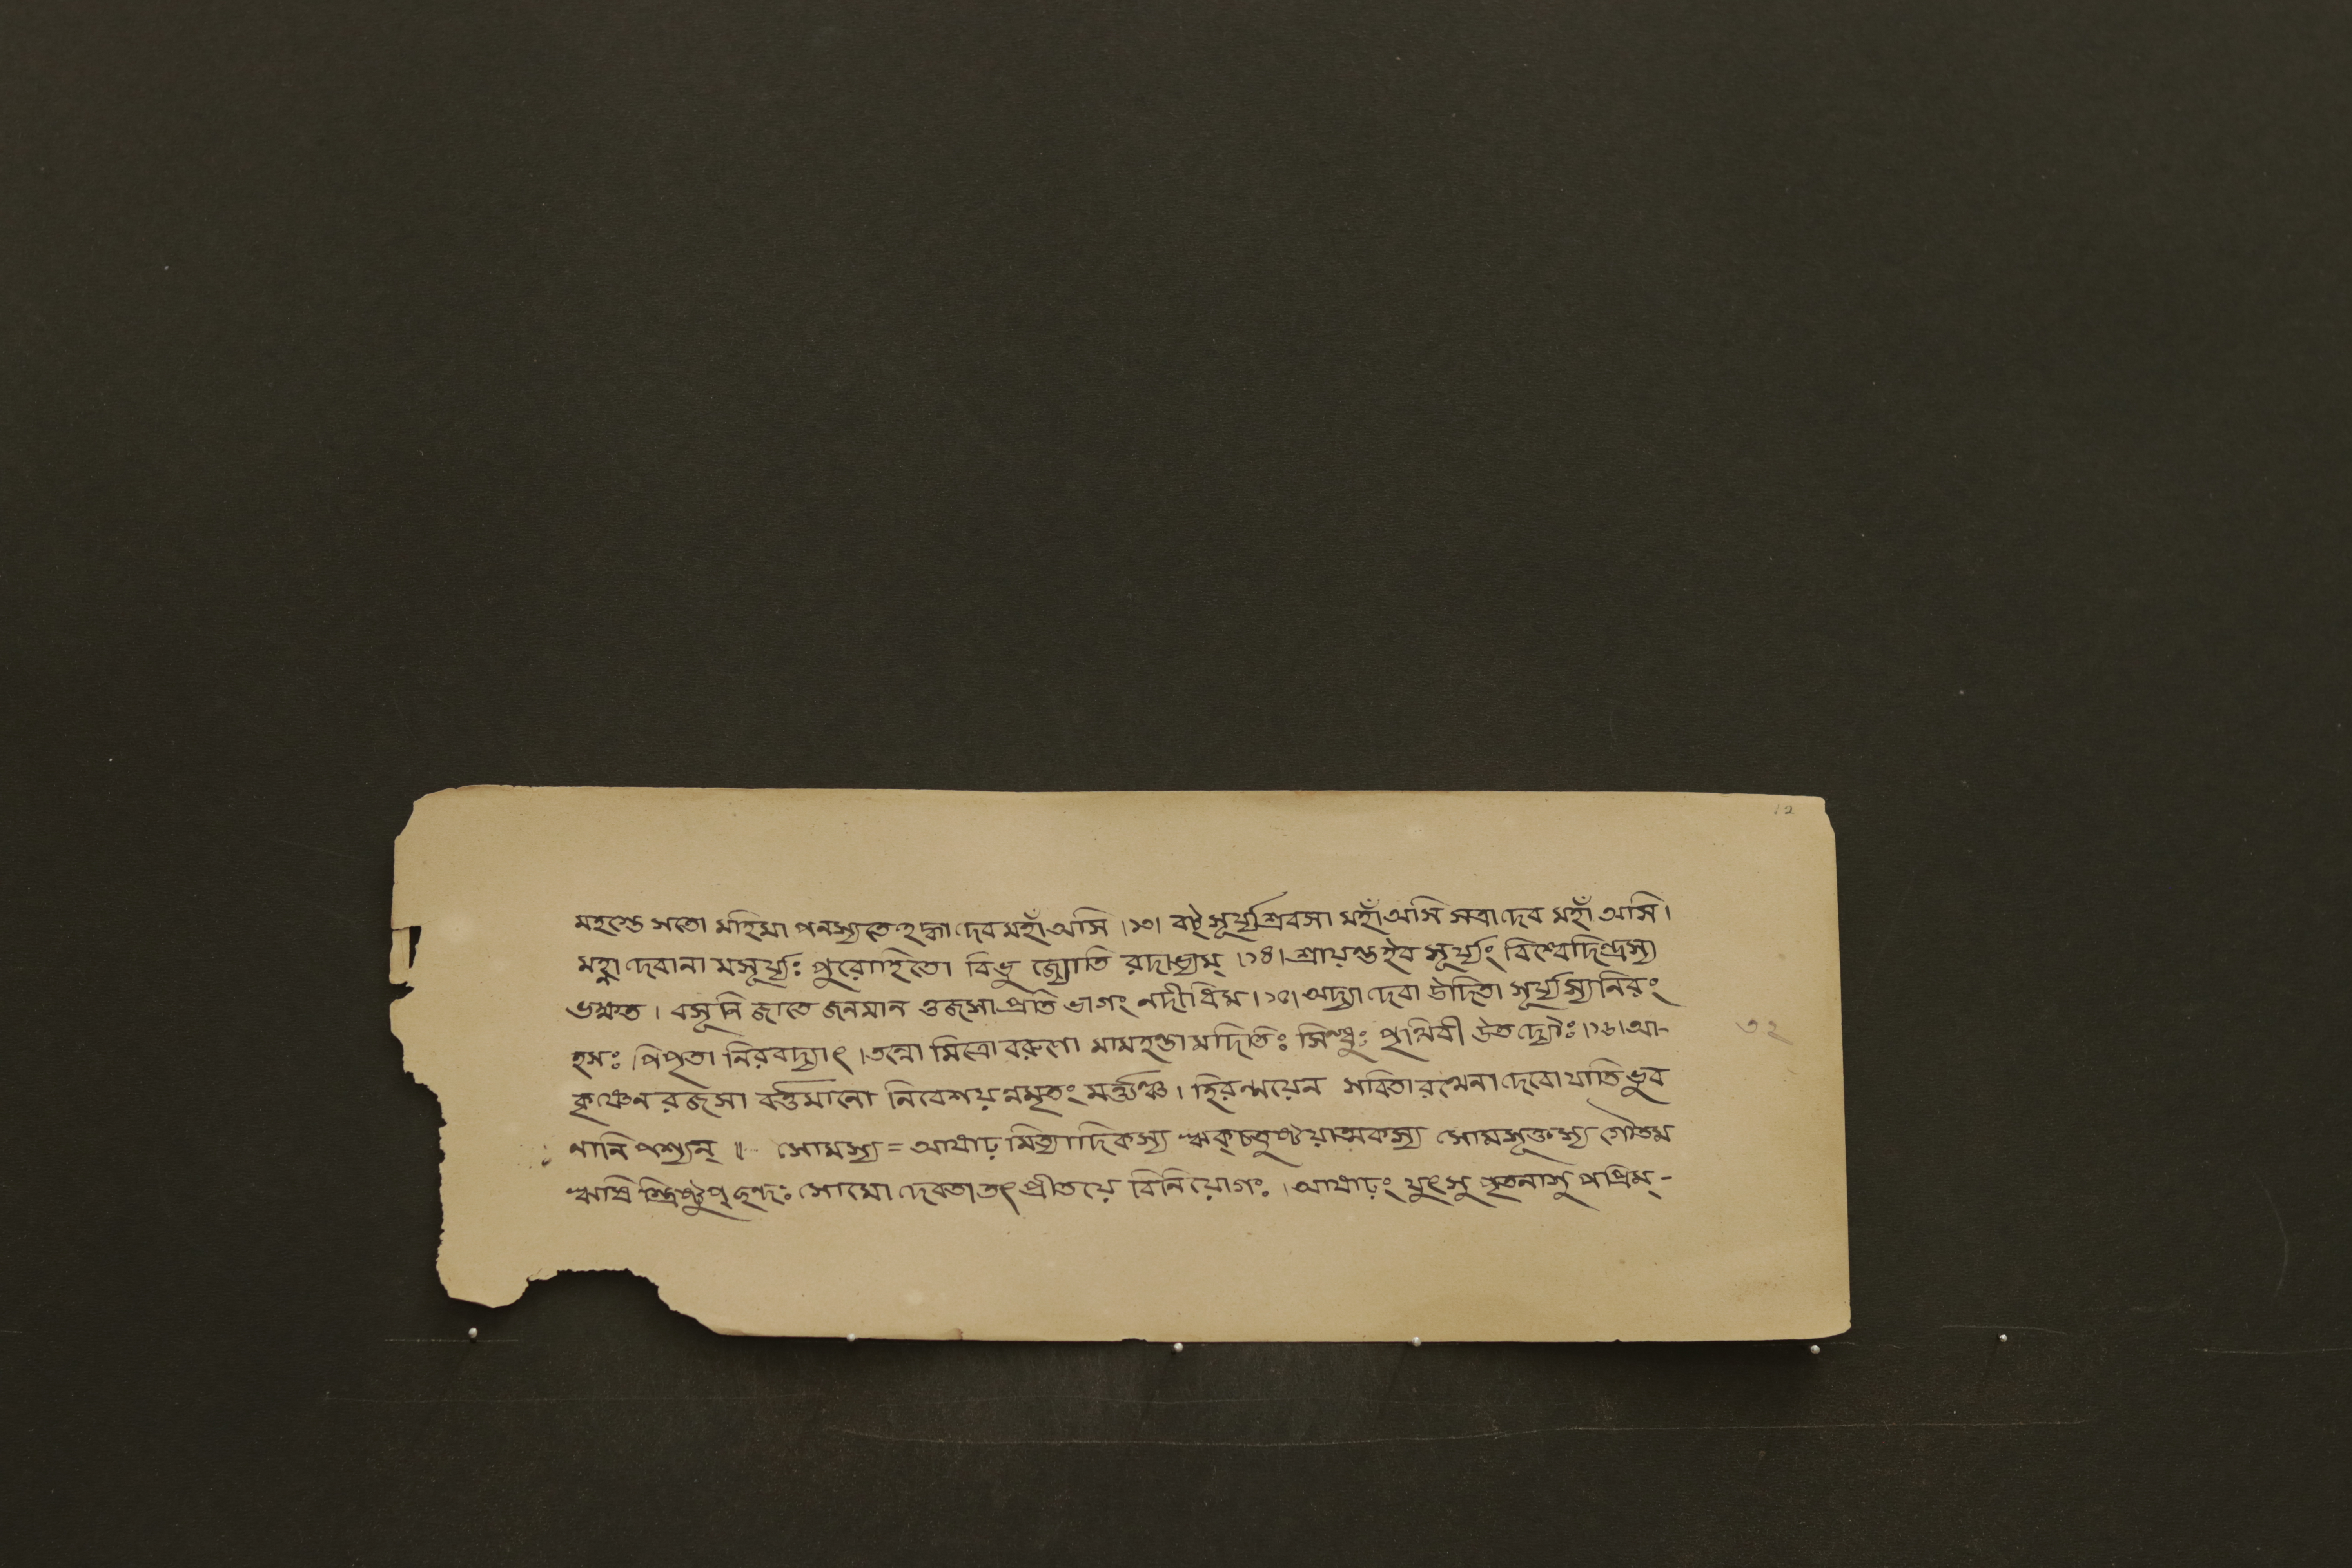 ১২
মহস্তে সতো মহিমা পনস্যতেহদ্ধা দেব মহাঁ অসি।১৩। বট্ সূর্য্য শ্রবসা মহাঁ অসি সত্রা দেব মহাঁ অসি।
মহ্না দেবানা মসূর্য্যঃ পুরোহিতো বিভু জ্যোতি রদাভ্যম্।১৪। শ্রায়ন্তইব সূর্য্যং বিশ্বেদিন্দ্রস্য
ভক্ষত। বসূনি জাতে জনমান ওজসা প্রতি ভাগং নদীধিম।১৫। অদ্যা দেবা উদিতা সূর্য্যস্যনিরং
হসঃ পিপৃতা নিরবদ্যাৎ। তন্নো মিত্রো বরুণো মামহন্তা মদিতিঃ সিন্ধুঃ পৃথিবী উত দ্যৌঃ।১৬। আ-
৩২
কৃষ্ণেন রজসা বর্ত্তমানো নিবেশয়ন্নমৃতং মর্ত্ত্যঞ্চ। হিরণ্ময়েন সবিতা রথেনা দেবো যাতি ভুব
নানি পশ্যন্॥ সোমস্য = আষাঢ় মিত্যাদিকস্য ঋক্‌চতুষ্টয়াত্মকস্য সোমসূক্তস্য গৌতম
ঋষি স্ত্রিষ্টুপ্‌ছন্দঃ সোমো দেবতা তৎ প্রীতয়ে বিনিয়োগঃ। আষাঢ়ং যুৎসু পৃতনাসু পপ্রিম্-